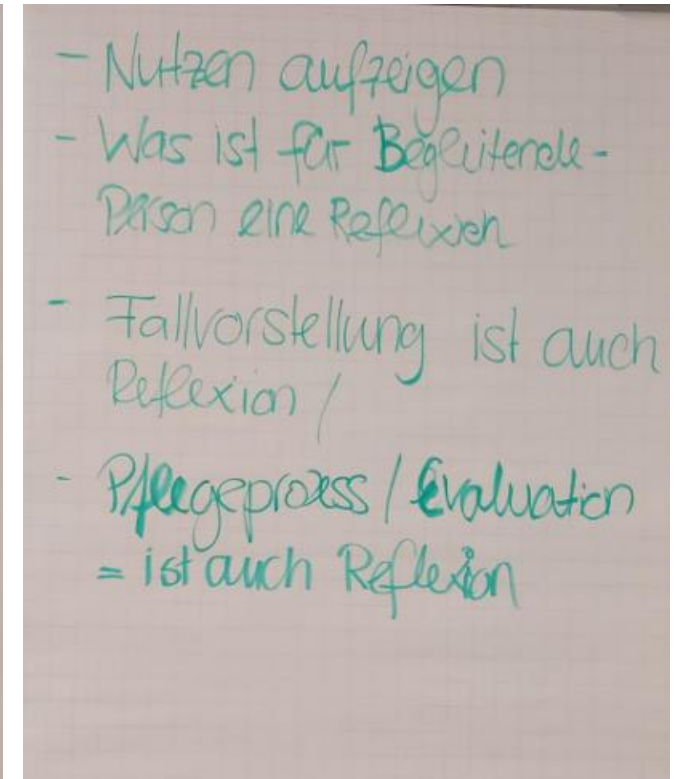 - Nutzen aufzeigen
- Was ist für Begleitende-
Person eine Reflexion
- Fallvorstellung ist auch
Reflexion /
- Pflegeprozess / Evaluation
= ist auch Reflexion